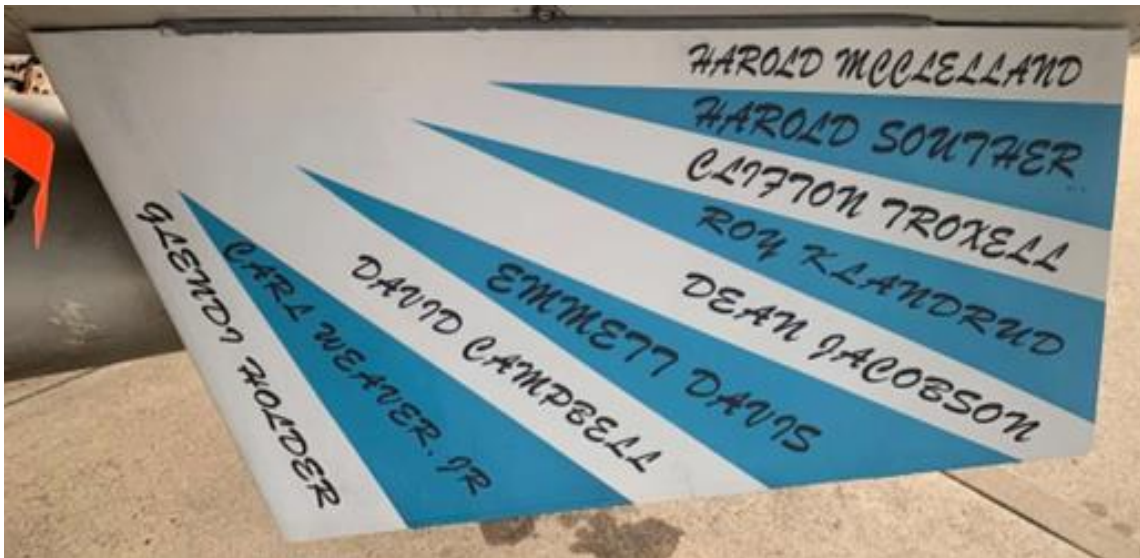 HAROLD MCCLELLAND
HAROLD SOUTHER
CLIFTON TROXELL
ROY KLANDRUD
DEAN JACOBSON
EMMETT DAVIS
DAVID CAMPBELL
CARL WEAVER.JR
GLENDI HOLDER